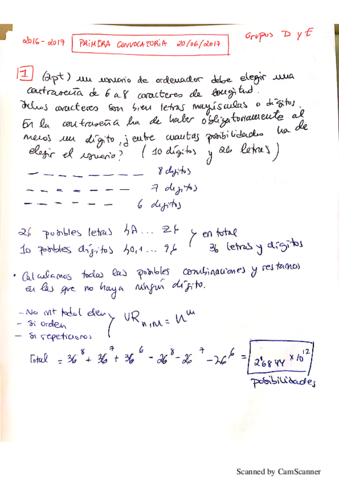 Grupos D y E
2016-2017 PRIMERA CONVOCATORIA 20/06/2017
1 (2pt) Un usuario de ordenador debe elegir una
contraseña de 6 a 8 caracteres de longitud.
Dichos caracteres son bien letras mayúsculas o dígitos.
En la contraseña ha de haber obligatoriamente al
menos un dígito, ¿entre cuántas posibilidades ha de
elegir el usuario? (10 dígitos y 26 letras)
8 dígitos
7 dígitos
6 dígitos
26 posibles letras {A ... Z}
10 posibles dígitos {0,1 ... 9} } en total 36 letras y dígitos
• Calculamos todas las posibles combinaciones y restamos
en las que no haya ningún dígito.
- No int total elem
- Si orden
- Si repeticiones } VR n,m = n^m
Total = 36^8 + 36^7 + 36^6 - 26^8 - 26^7 - 26^6 = 2'6844 × 10^12
posibilidades
Scanned by CamScanner